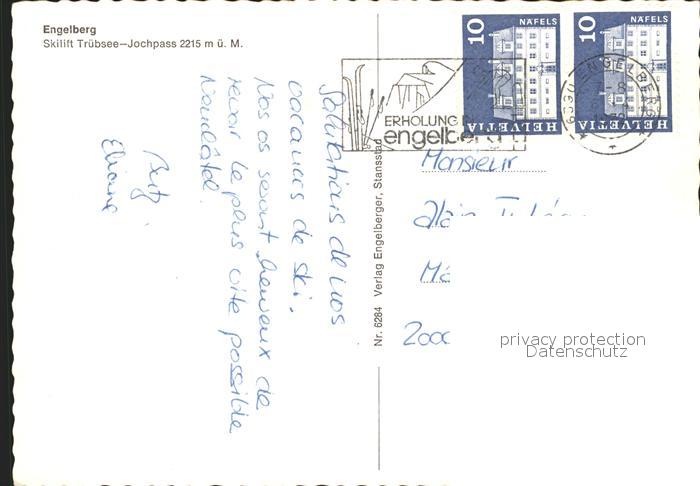 Engelberg
Skilift Trübsee—Jochpass 2215 m ü. M.
10 NÄFELS
HELVETIA
10 NÄFELS
HELVETIA
ERHOLUNG
engelberg
6390 ENGELBERG
Nr. 6284 Verlag Engelberger, Stansstad
Salutations de nos
vacances de ski.
Nos os seront heureux de
revoir le plus vite possible
Neuchâtel.
Eliane
Monsieur
Alain
2000
privacy protection
Datenschutz